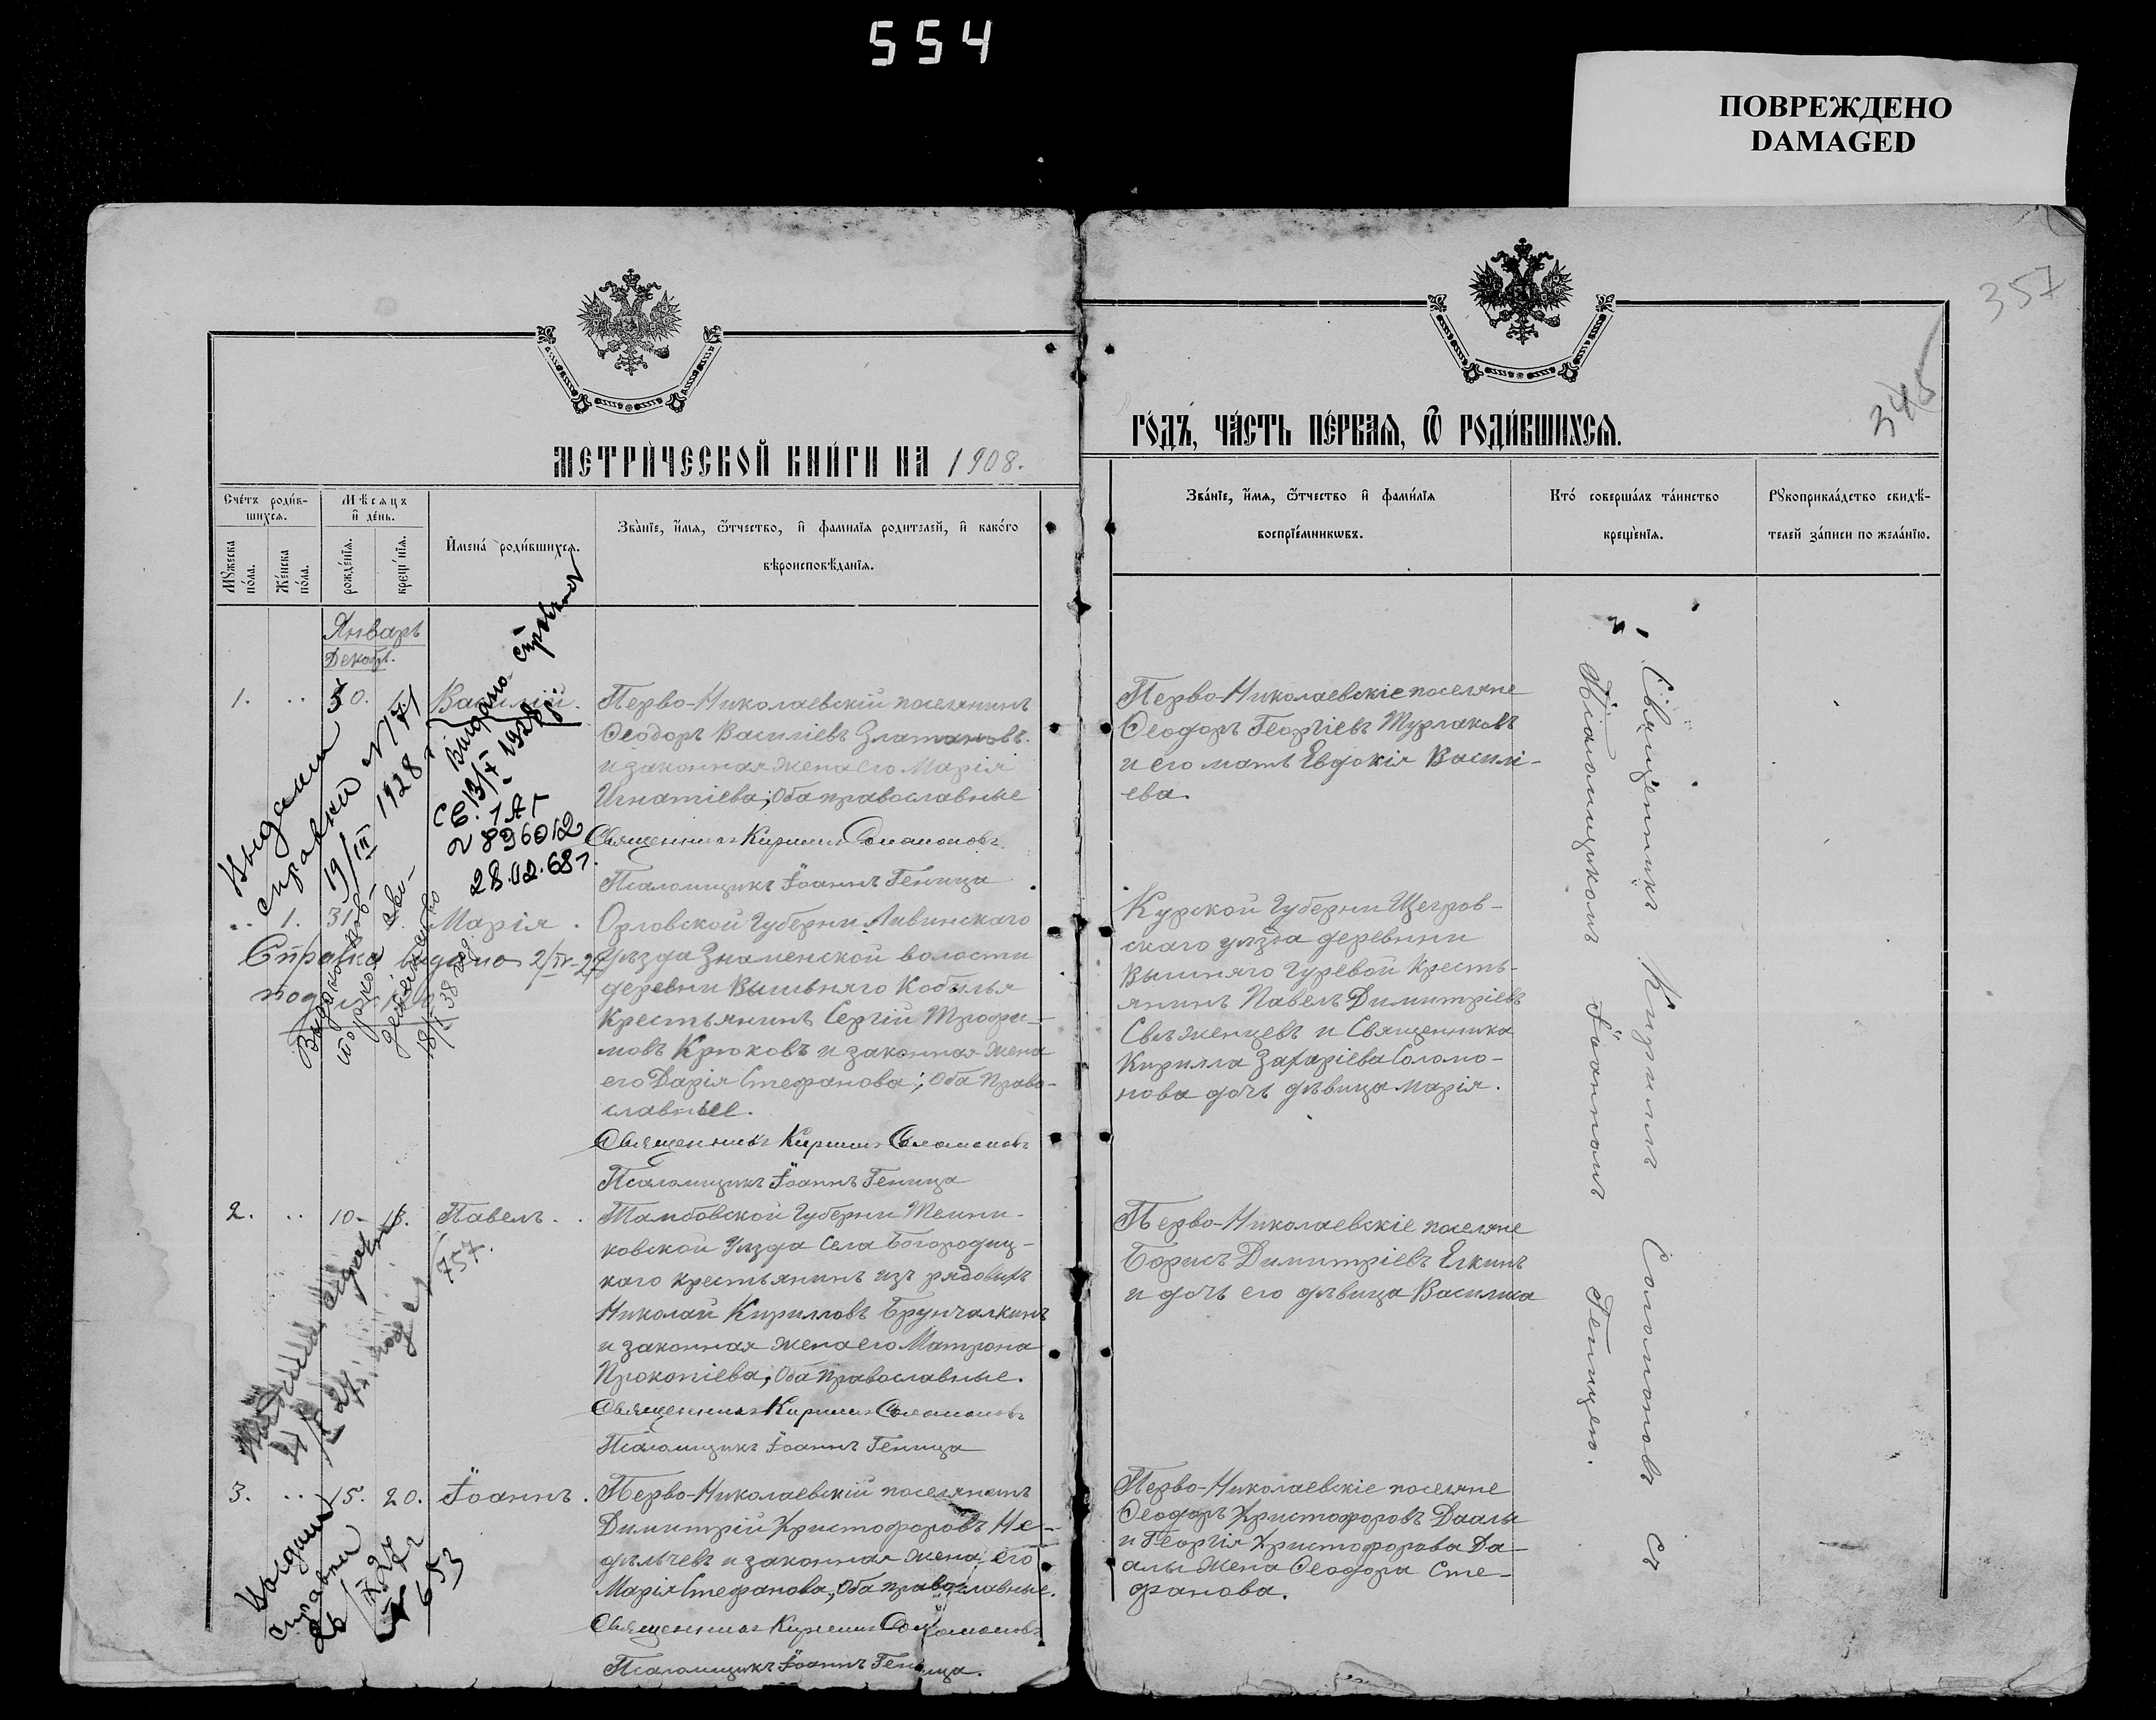 554
ПОВРЕЖДЕНО
DAMAGED
357
345
МЕТРИЧЕСКОЙ КНИГИ НА 1908.
ГОДЪ, ЧАСТЬ ПЕРВАЯ, Ѿ РОДИВШИХСЯ.
Счетъ родив-
шихся.
Мѣсяцъ
и день.
Мужеска
пола.
Женска
пола.
рожденія.
крещенія.
Имена родившихся.
Званіе, имя, ѿтчество, и фамилія родителей, и какого
вѣроисповѣданія.
Званіе, имя, ѿтчество и фамилія
воспріемникѡвъ.
Кто совершалъ таинство
крещенія.
Рукоприкладство свидѣ-
телей записи по желанію.
Январь
Декабр.
1.
30.
Василій.
Перво-Николаевскій поселянинъ
Ѳеодоръ Василіевъ Златановъ.
и законная жена его Марія
Игнатіева; Оба православные
Священникъ Кириллъ Соломоновъ
Псаломщикъ Іоаннъ Геница
Перво-Николаевскіе поселяне
Ѳеодоръ Георгіевъ Турлаковъ
и его мать Евдокія Василі-
ева.
Выданы
справки №171
19/III 1928 г
Выдано справка
СБ. 13/V 1928
1 АГ
2896012
28.02.68 г.
1. 31.
Марія.
Орловской Губерни Ливинскаго
уѣзда Знаменской волости
деревни Вышняго Кобылья
Крестьянинъ Сергій Трофи-
мовъ Крюковъ и законная жена
его Дарія Стефанова; Оба Право-
славные.
Священникъ Кириллъ Соломоновъ
Псаломщикъ Іоаннъ Геница
Курской Губерни Щегров-
скаго уѣзда деревнни
Вышняго Гуревой Кресть-
янинъ Павелъ Димитріевъ
Свѣженцевъ и Священника
Кирилла Захаріева Соломо-
нова дочь дѣвица Марія.
Справка видано 2/IV-29
под
Выдано
18/I 38 год
2. 10. 13.
Павелъ.
Тамбовской Губерни Темни-
ковской Уѣзда Села Богородиц-
каго крестьянинъ изъ рядовыхъ
Николай Кирилловъ Брунчалкинъ
и законная жена его Матрона
Прокопіева; Оба Православные.
Священникъ Кириллъ Соломоновъ
Псаломщикъ Іоаннъ Геница
Перво-Николаевскіе поселяне
Борисъ Димитріевъ Елкинъ
и дочь его дѣвица Василиса
справка
757.
3. 15. 20.
Іоаннъ.
Перво-Николаевскій поселянинъ
Димитрій Христофоровъ Не-
дѣльчевъ и законная жена его
Марія Стефанова, Оба православные.
Священникъ Кириллъ Соломоновъ
Псаломщикъ Іоаннъ Геница.
Перво-Николаевскіе поселяне
Ѳеодоръ Христофоровъ Даалы
и Георгія Христофорова Да-
алы жена Ѳеодора Сте-
фанова.
Выданы
справки
26/IX 27 г
№ 653
Священникъ Кириллъ Соломоновъ съ
Псаломщикомъ Іоанномъ Геницею.